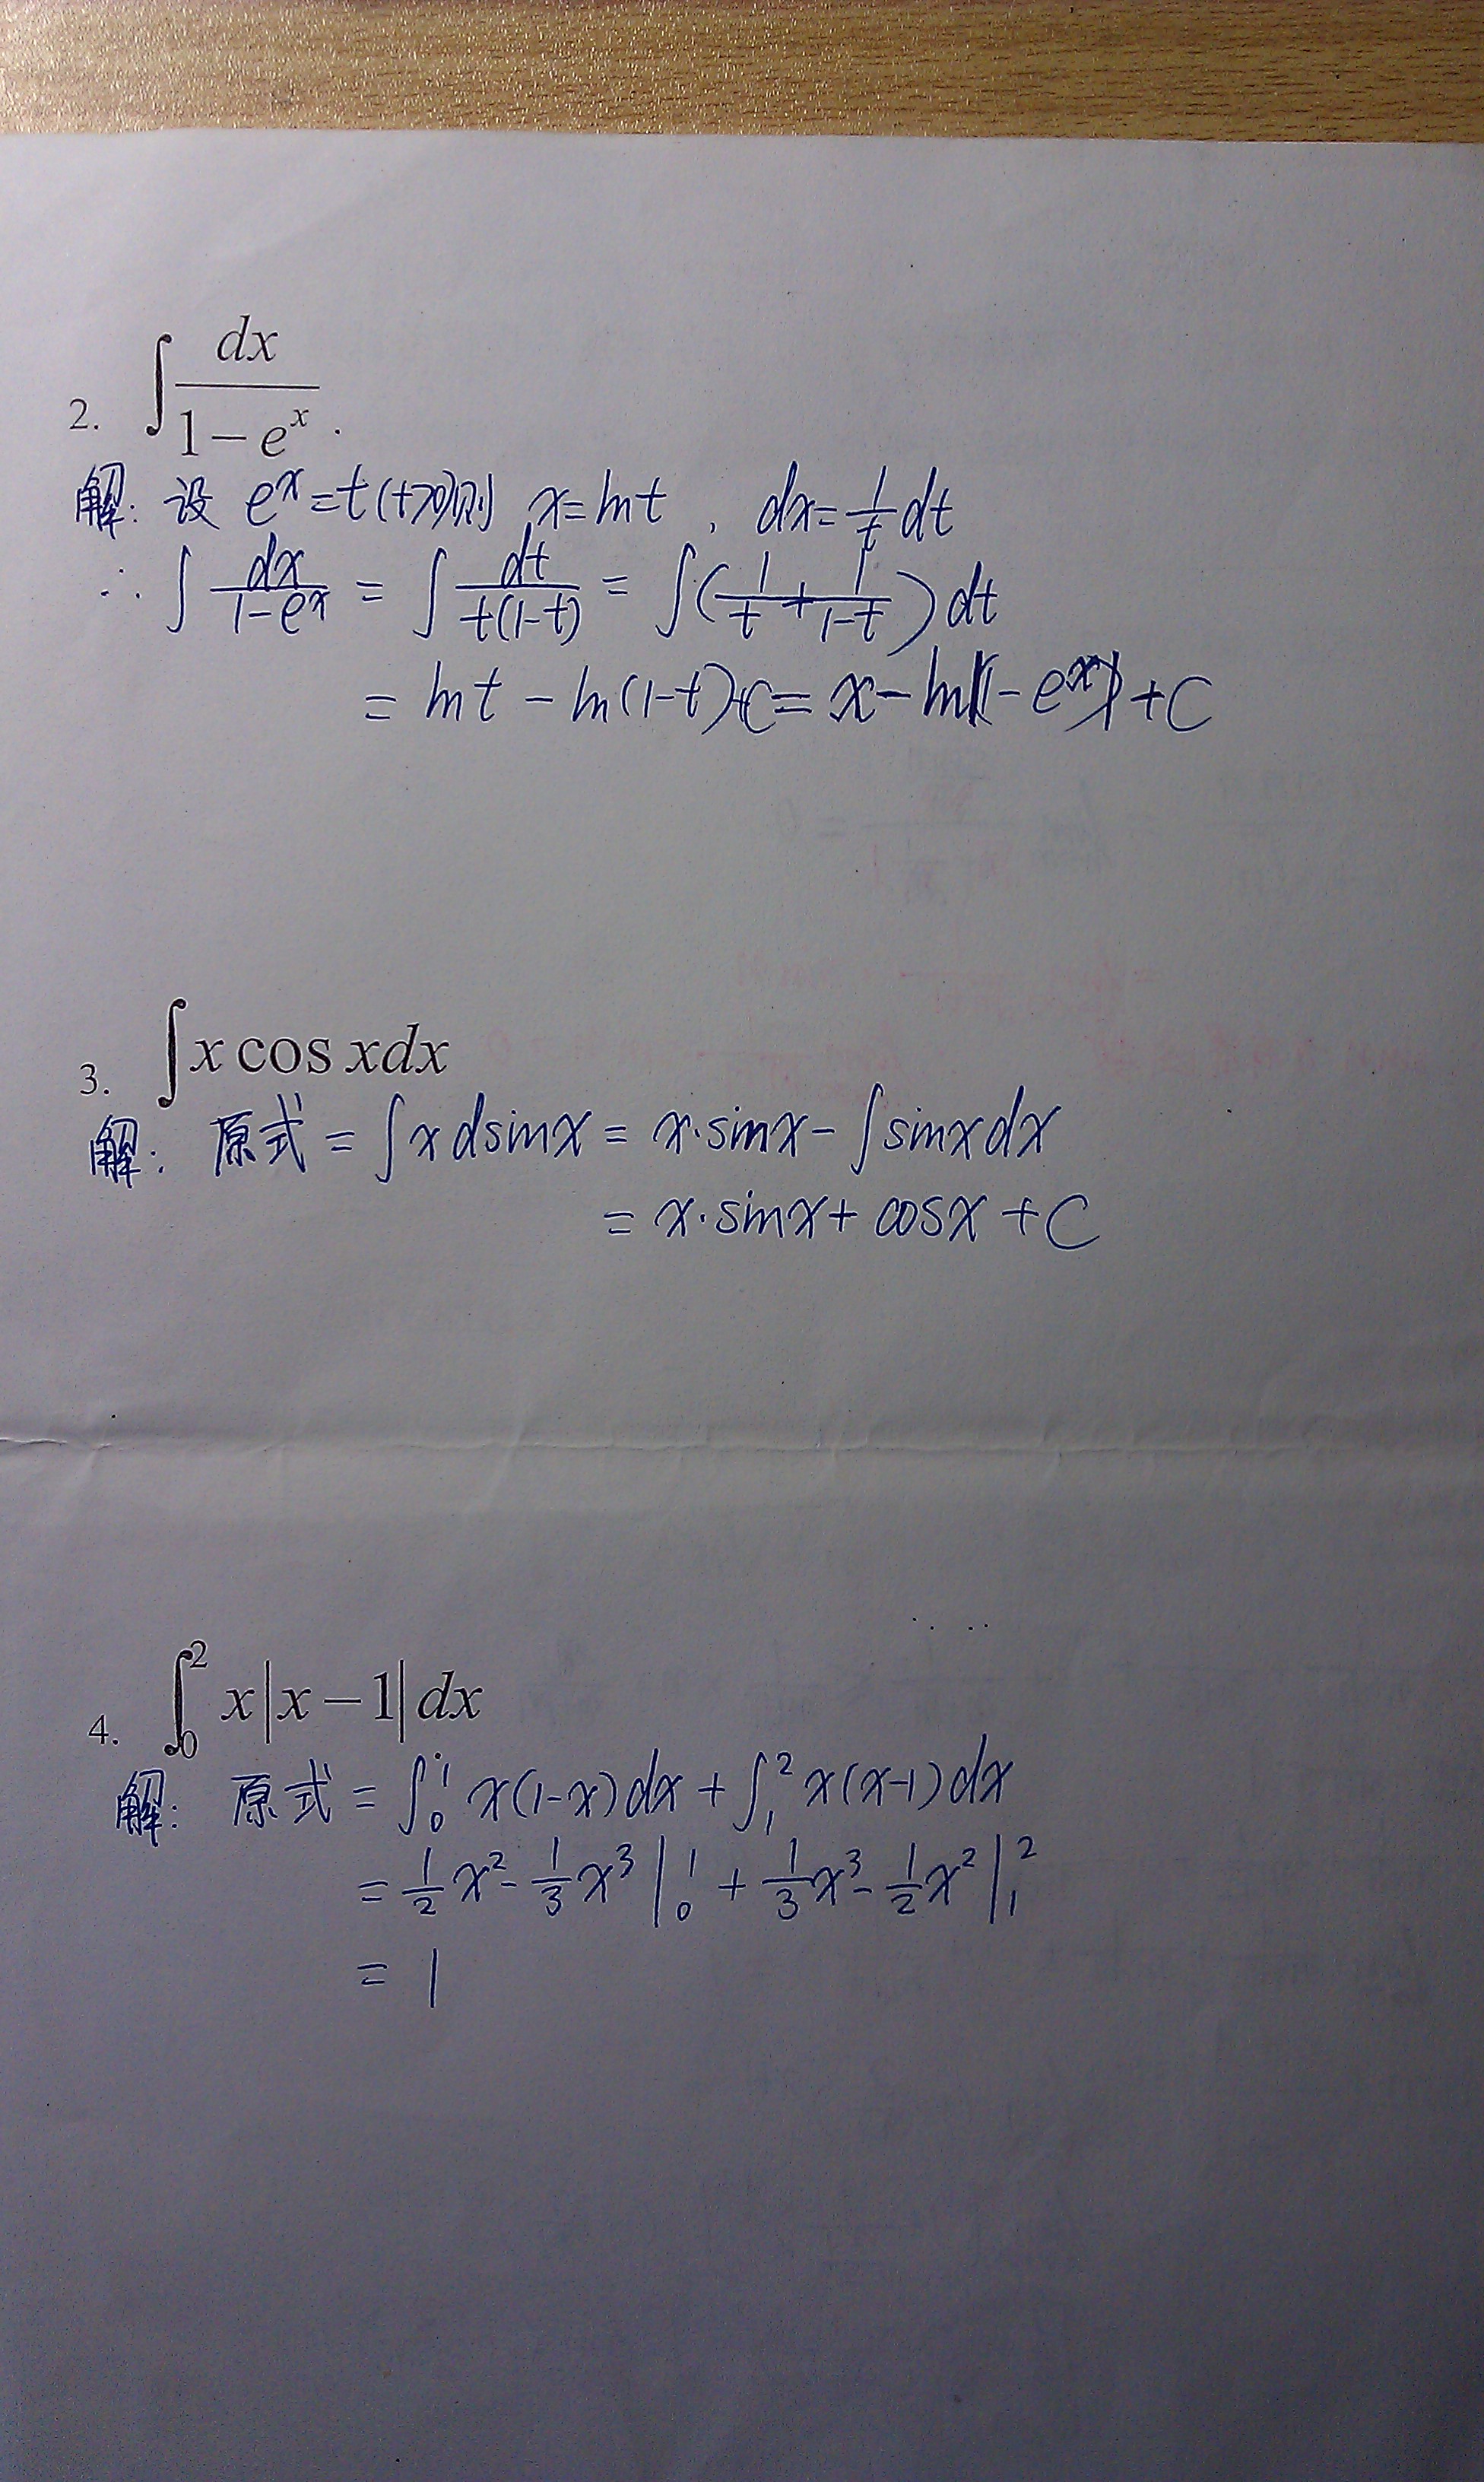 2. ∫ dx/(1−e^x) .
解: 设 e^x=t(t>0)则 x=lnt , dx=1/t dt
∴ ∫ dx/(1−e^x) = ∫ dt/(t(1−t)) = ∫(1/t + 1/(1−t))dt
= lnt − ln(1−t)+C= x − ln|1−e^x| +C
3. ∫x cos xdx
解: 原式 = ∫x dsinx = x·sinx− ∫sinxdx
= x·sinx+ cosx +C
4. ∫_0^2 x|x−1|dx
解: 原式 = ∫_0^1 x(1−x)dx + ∫_1^2 x(x−1)dx
= 1/2 x^2 − 1/3 x^3 |_0^1 + 1/3 x^3 − 1/2 x^2 |_1^2
= 1